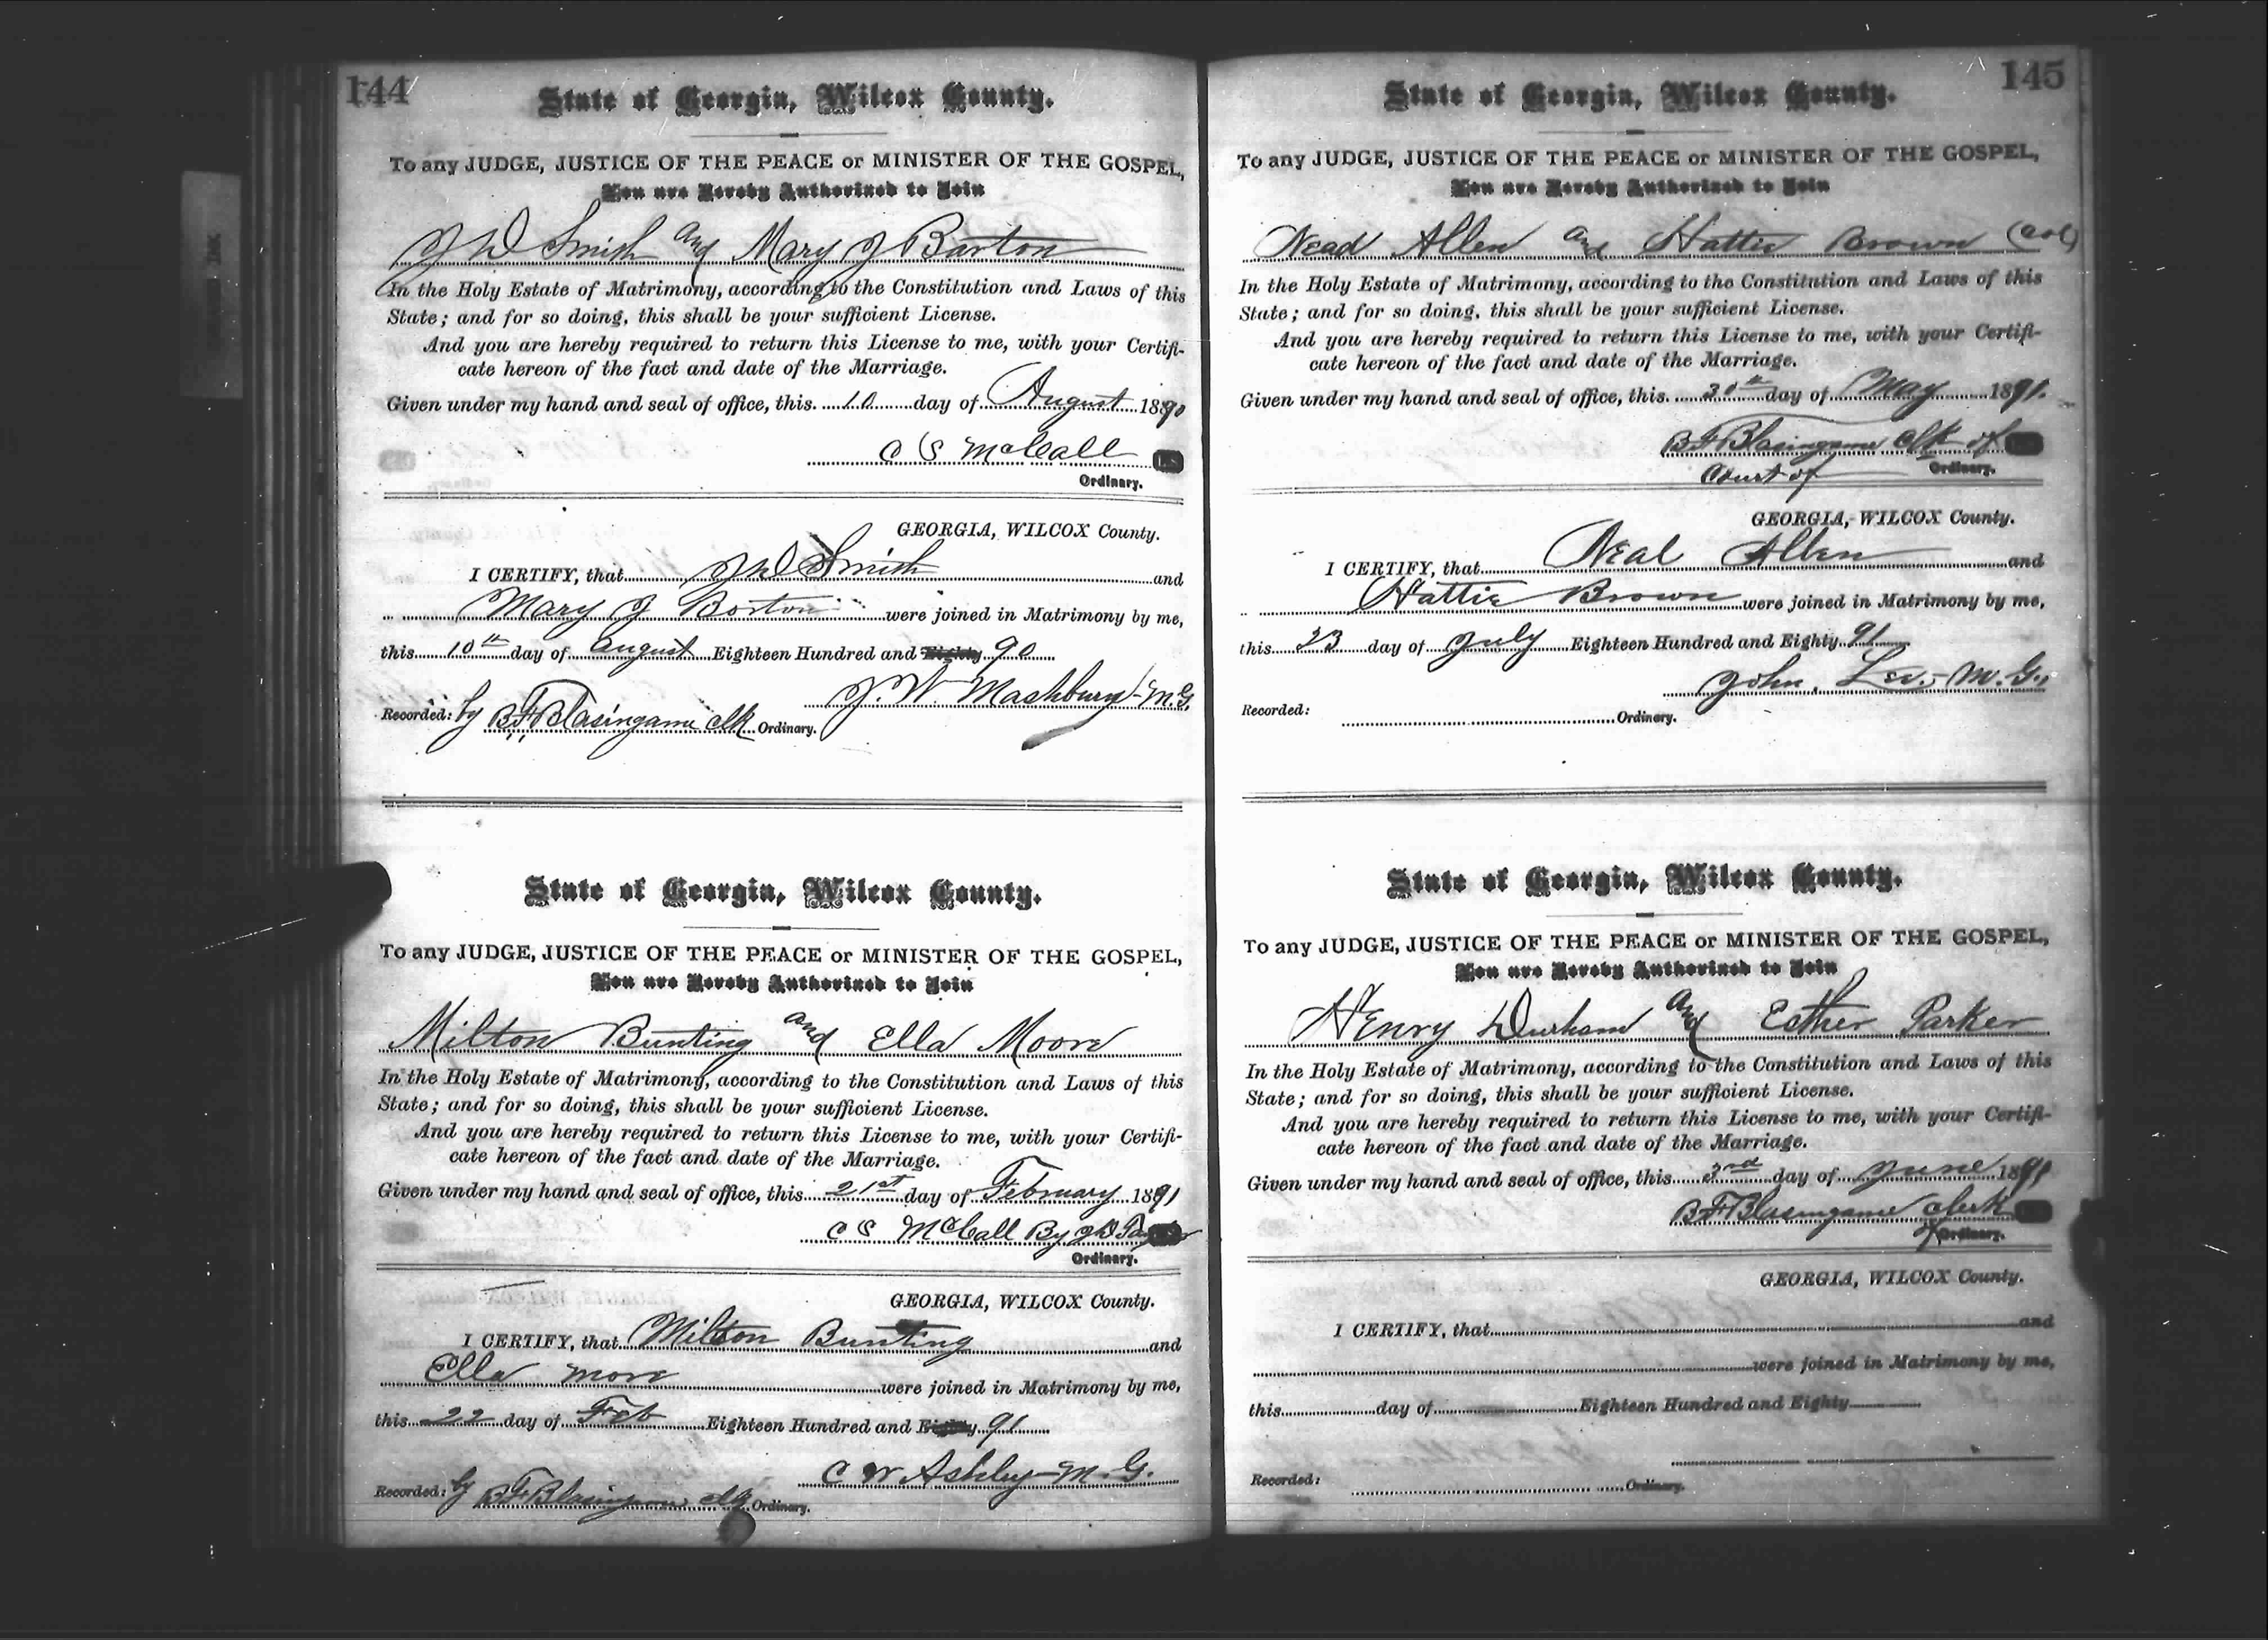 144
State of Georgia, Wilcox County.
To any JUDGE, JUSTICE OF THE PEACE or MINISTER OF THE GOSPEL,
You are Hereby Authorized to Join
J W Smith and Mary J Barton
In the Holy Estate of Matrimony, according to the Constitution and Laws of this
State; and for so doing, this shall be your sufficient License.
And you are hereby required to return this License to me, with your Certifi-
cate hereon of the fact and date of the Marriage.
Given under my hand and seal of office, this 10 day of August 1890
C S McCall
Ordinary.
GEORGIA, WILCOX County.
I CERTIFY, that J W Smith and
Mary J Borton were joined in Matrimony by me,
this 10th day of August Eighteen Hundred and Eighty 90
J. W. Mashburn M.G.
Recorded: by B F Blasingame clk Ordinary.
State of Georgia, Wilcox County.
To any JUDGE, JUSTICE OF THE PEACE or MINISTER OF THE GOSPEL,
You are Hereby Authorized to Join
Milton Bunting and Ella Moore
In the Holy Estate of Matrimony, according to the Constitution and Laws of this
State; and for so doing, this shall be your sufficient License.
And you are hereby required to return this License to me, with your Certifi-
cate hereon of the fact and date of the Marriage.
Given under my hand and seal of office, this 21st day of February 1891
C S McCall By
Ordinary.
GEORGIA, WILCOX County.
I CERTIFY, that Milton Bunting and
Ella More were joined in Matrimony by me,
this 22 day of Feb Eighteen Hundred and Eighty 91
C W Ashley M.G.
Recorded: by B F Blasingame clk Ordinary.
145
State of Georgia, Wilcox County.
To any JUDGE, JUSTICE OF THE PEACE or MINISTER OF THE GOSPEL,
You are Hereby Authorized to Join
Nead Allen and Hattie Brown (Col)
In the Holy Estate of Matrimony, according to the Constitution and Laws of this
State; and for so doing, this shall be your sufficient License.
And you are hereby required to return this License to me, with your Certifi-
cate hereon of the fact and date of the Marriage.
Given under my hand and seal of office, this 30th day of May 1891.
B F Blasingame Clk of
Court of Ordinary.
GEORGIA, WILCOX County.
I CERTIFY, that Neal Allen and
Hattie Brown were joined in Matrimony by me,
this 23 day of July Eighteen Hundred and Eighty 91
John Lee M.G.
Recorded: Ordinary.
State of Georgia, Wilcox County.
To any JUDGE, JUSTICE OF THE PEACE or MINISTER OF THE GOSPEL,
You are Hereby Authorized to Join
Henry Durham and Esther Parker
In the Holy Estate of Matrimony, according to the Constitution and Laws of this
State; and for so doing, this shall be your sufficient License.
And you are hereby required to return this License to me, with your Certifi-
cate hereon of the fact and date of the Marriage.
Given under my hand and seal of office, this 3rd day of June 1891
B F Blasingame clerk
of Ordinary.
GEORGIA, WILCOX County.
I CERTIFY, that and
were joined in Matrimony by me,
this day of Eighteen Hundred and Eighty
Recorded: Ordinary.